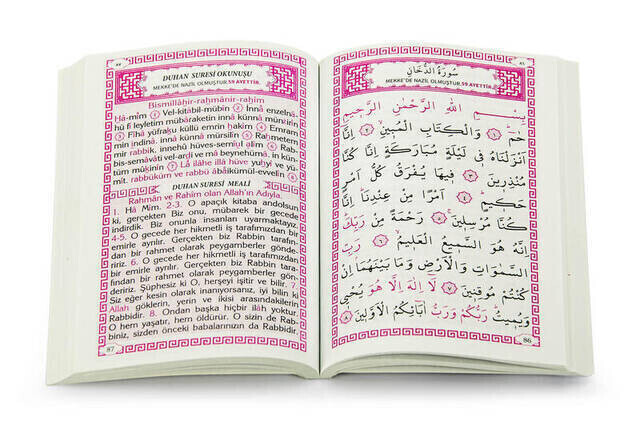 سُورَةُ الدُّخَانِ
MEKKE'DE NAZİL OLMUŞTUR,59 AYETTİR.
بِسْمِ اللهِ الرَّحْمٰنِ الرَّحِيمِ
حٰمٓ ﴿١﴾ وَالْكِتَابِ الْمُبِينِ ﴿٢﴾ اِنَّٓا
اَنْزَلْنَاهُ فِي لَيْلَةٍ مُبَارَكَةٍ اِنَّا كُنَّا
مُنْذِرِينَ ﴿٣﴾ فِيهَا يُفْرَقُ كُلُّ اَمْرٍ
حَكِيمٍ ﴿٤﴾ اَمْرًا مِنْ عِنْدِنَا اِنَّا
كُنَّا مُرْسِلِينَ ﴿٥﴾ رَحْمَةً مِنْ رَبِّكَ
اِنَّهُ هُوَ السَّمِيعُ الْعَلِيمُ ﴿٦﴾ رَبِّ
السَّمٰوَاتِ وَالْاَرْضِ وَمَا بَيْنَهُمَا اِنْ
كُنْتُمْ مُوقِنِينَ ﴿٧﴾ لَٓا اِلٰهَ اِلَّا هُوَ يُحْيِي
وَيُمِيتُ رَبُّكُمْ وَرَبُّ اٰبَٓائِكُمُ الْاَوَّلِينَ ﴿٨﴾
86
DUHAN SURESİ OKUNUŞU
MEKKE'DE NAZİL OLMUŞTUR,59 AYETTİR.
Bismillâhir-raḥmânir-raḥîm
Hâ-mîm ① Vel-kitâbil-mübîn ② İnnâ enzelnâ-
hü fî leyletim mübâraketin innâ künnâ münzirîn
③ Fîhâ yüfraku küllü emrin ḥakîm ④ Emram
min indinâ, innâ künnâ mürsilîn ⑤ Raḥmetem
mir rabbik, innehû hüves-semîul alîm ⑥ Rab-
bis-semâvâti vel-arḍi ve mâ beynehümâ, in kün-
tüm mûkinîn ⑦ Lâ ilâhe illâ hüve yuḥyî ve yü-
mît, rabbüküm ve rabbü âbâikümül-evvelîn ⑧
DUHAN SURESİ MEALİ
Rahmân ve Rahîm olan Allah'ın Adıyla.
1. Hâ Mîm. 2-3. O apaçık kitaba andolsun
ki, gerçekten Biz onu, mübarek bir gecede
indirdik. Biz onunla insanları uyarmaktayız.
4-5. O gecede her hikmetli iş tarafımızdan bir
emirle ayrılır. Gerçekten Biz Rabbin tarafın-
dan bir rahmet olarak peygamberler gönde-
ririz. 6. O gecede her hikmetli iş tarafımızdan
bir emirle ayrılır. Gerçekten Biz Rabbin tara-
fından bir rahmet olarak peygamberler gön-
deririz. Şüphesiz ki O, herşeyi işitir ve bilir. 7.
Siz eğer kesin olarak inanıyorsanız, iyi bilin ki
Allah göklerin, yerin ve ikisi arasındakilerin
Rabbidir. 8. Ondan başka hiçbir ilâh yoktur.
O hem yaşatır, hem öldürür. O sizin de Rab-
biniz, sizden önceki babalarınızın da Rabbidir.
87